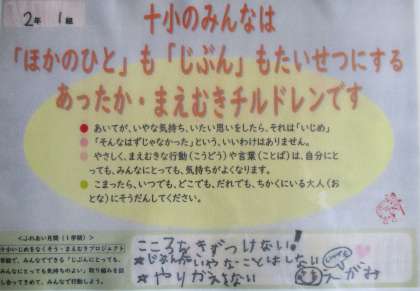 2年 1組
十小のみんなは
「ほかのひと」も「じぶん」もたいせつにする
あったか・まえむきチルドレンです
あいてが、いやな気持ち、いたい思いをしたら、それは「いじめ」
「そんなはずじゃなかった」という、いいわけはありません。
やさしく、まえむきな行動(こうどう)や言葉(ことば)は、自分にと
っても、みんなにとっても、気持ちがよくなります。
こまったら、いつでも、どこでも、だれでも、ちかくにいる大人(お
とな)にそうだんしてください。
<ふれあい月間(1学期)>
十小いじめをなくそう・まえむきプロジェクト
学級で、みんなでできる「じぶんにとっても、
みんなにとっても気持ちのよい」取り組みを話
し合ってきめて、みんなで行動しよう。
こころをきずつけない!
★じぶんがいやなことはしない
★やりかえさない